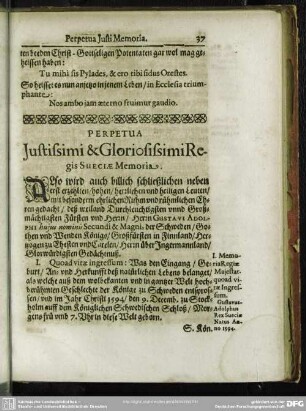 Perpetua Justi Memoria. 37
ten beeden Christ-Gottseligen Potentaten gar wol mag ge-
heissen haben:
Tu mihi sis Pylades, & ero tibi fidus Orestes.
So heisset es nun anjetzo in jenem Leben / in Ecclesia trium-
phante.
Nos ambo jam æterno fruimur gaudio.
PERPETUA
Justissimi & Gloriosissimi Re-
gis SUECIÆ Memoria.
ALso wird auch billich schließlichen neben
erst erzehlten hohen / herzlichen und
mit besonderm ehrlichen Ruhm und rühmlichen Eh-
ren gedacht / deß weiland Durchleuchtigsten unnd Groß-
mächtigsten Fürsten und Herrn / Herrn GUSTAVI ADOL-
PHI hujus nominis Secundi & Magni, der Schweden / Go-
then und Wenden Königs / Großfürsten in Finnland / Her-
zogen zu Ehesten und Carelen / Herrn über Ingermannland /
Glorwürdigsten Gedächtnuß.
I. Quoad vitæ ingressum: Was den Eingang / Ge-
burt / An- und Herkunfft deß natürlichen Lebens belanget /
als welche auß dem wolbekanten und in gantzer Welt hoch-
berühmten Geschlechte der Könige zu Schweden entspros-
sen / und im Jahr Christi 1594 / den 9. Decemb. zu Stock-
holm auff dem Königlichen Schwedischen Schloß / Mor-
gens früh und 7. Uhr in diese Welt geborn.
I. Memo-
ria Regiæ
Majestat.
quoad vi-
tæ ingres-
sum.
Gustavus
Adolphus
Rex Sueciæ
Natus An-
no 1594.
S. Kön.